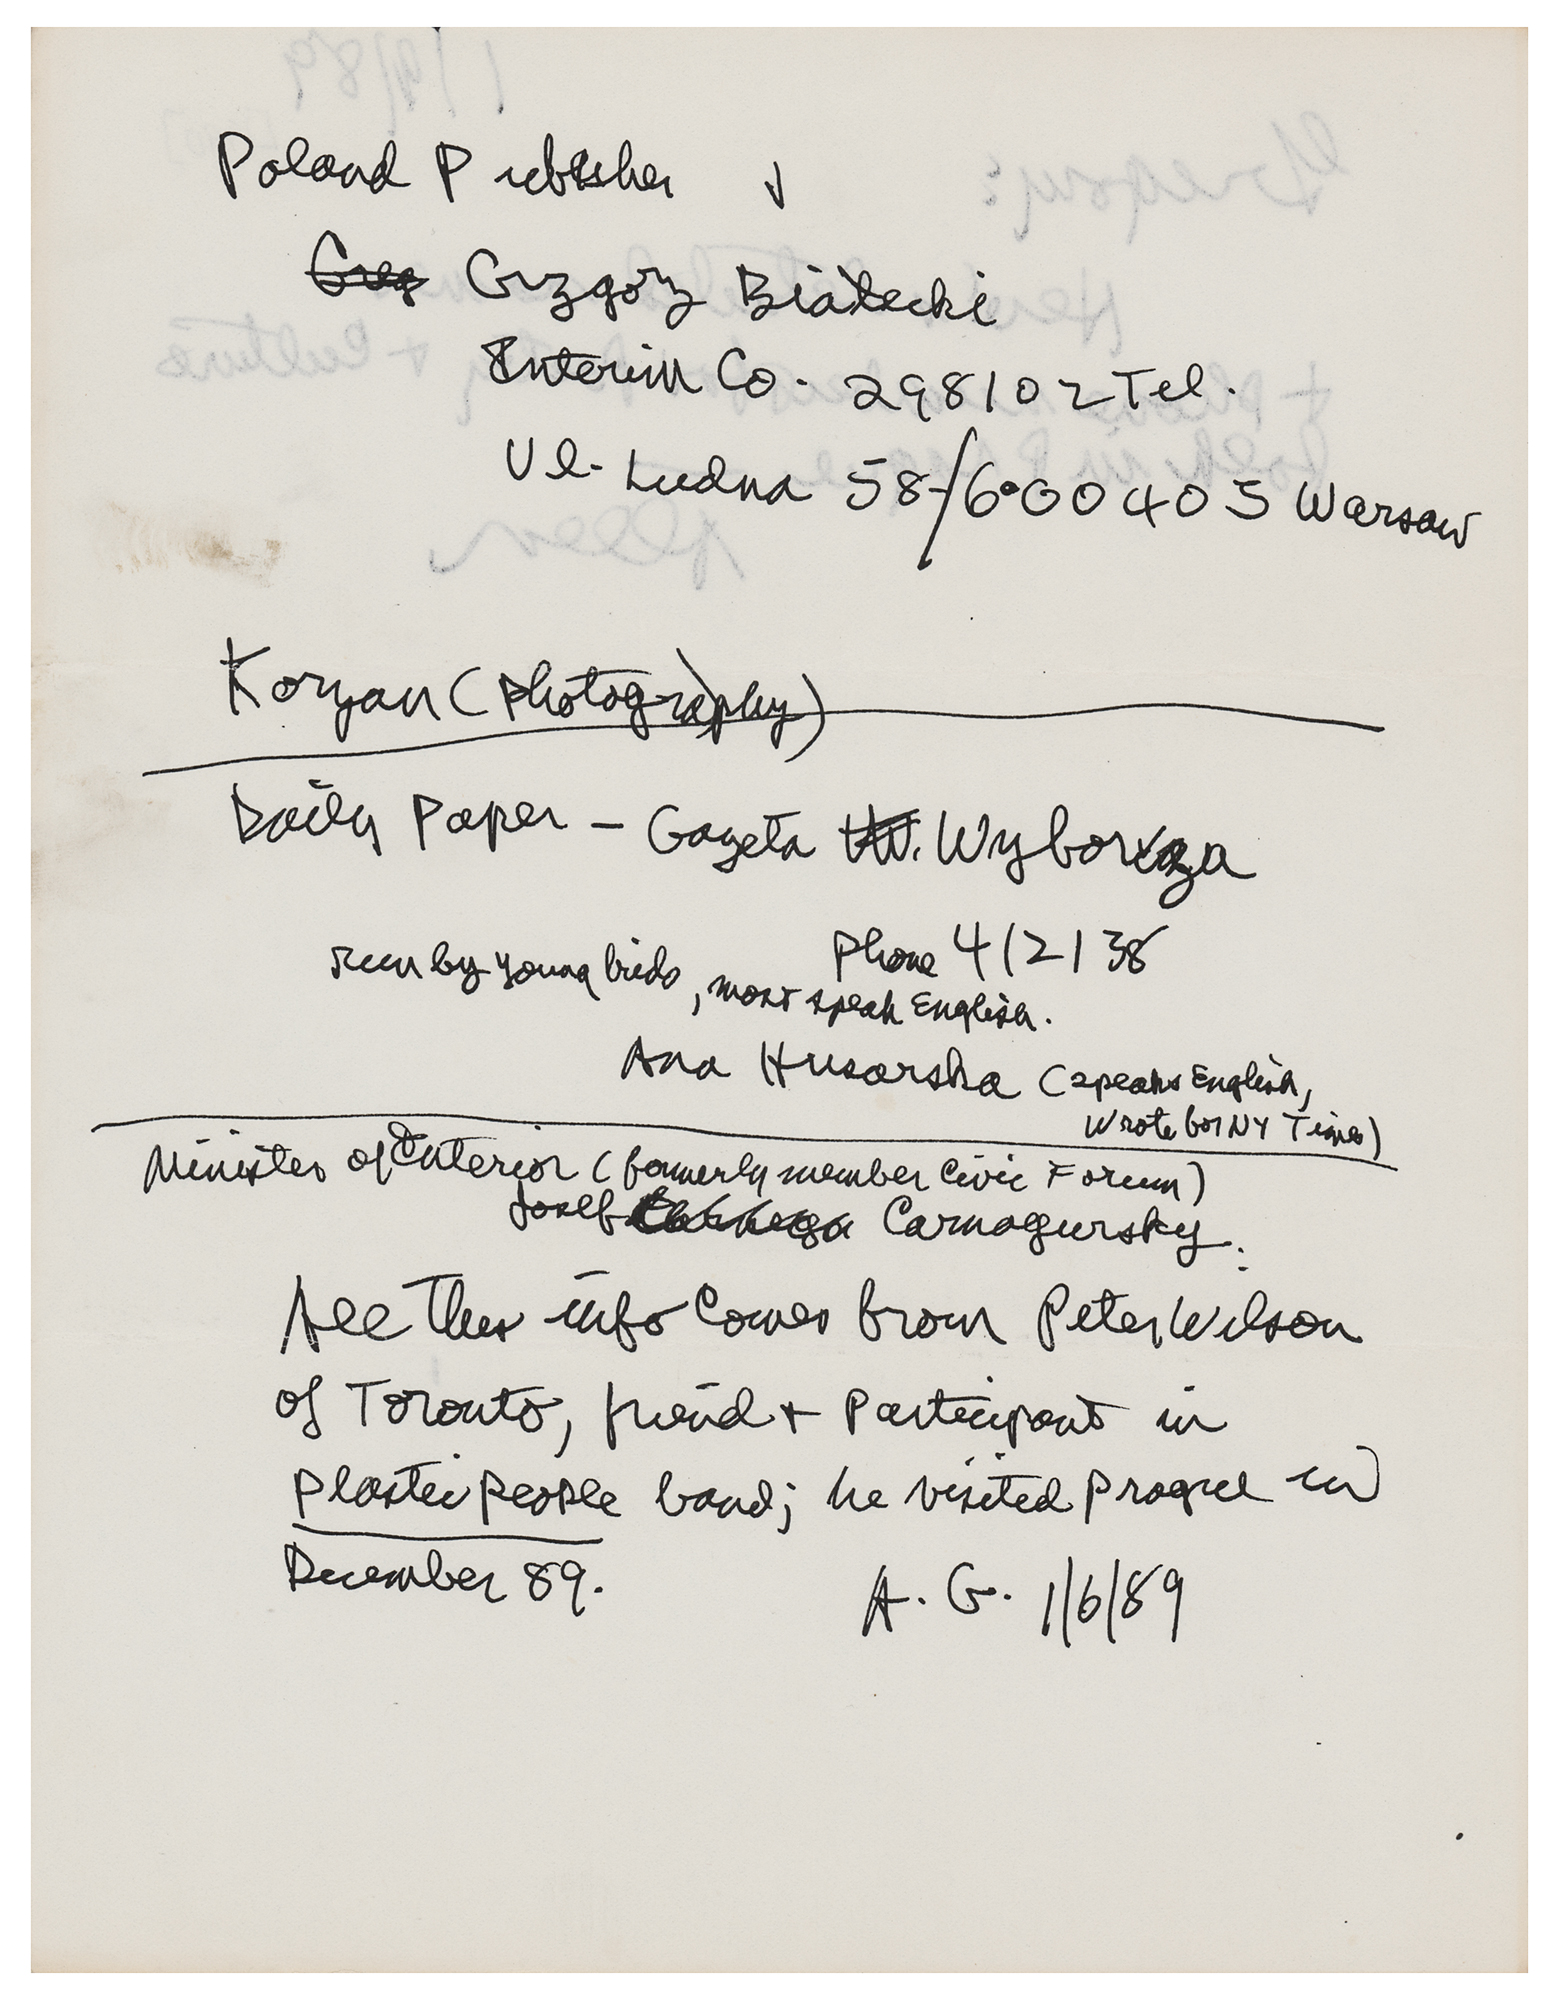 Poland Publisher ↓
Greg Grzgorz Białecki
Interim Co. 298102 Tel.
Ul. Ludna 58/6 • 00405 Warsaw
Koryan (Photography)
Daily Paper – Gazeta W. Wyborcza
Phone 412138
run by young kids, most speak English.
Ana Husarska (speaks English,
wrote for NY Times)
Minister of Interior (formerly member Civic Forum)
Josef Carnogursky.
All this info comes from Peter Wilson
of Toronto, friend + Participant in
Plastic People band; he visited Prague in
December 89.
A. G. 1/6/89
1/9/89
Gregory:
+ culture
Allen